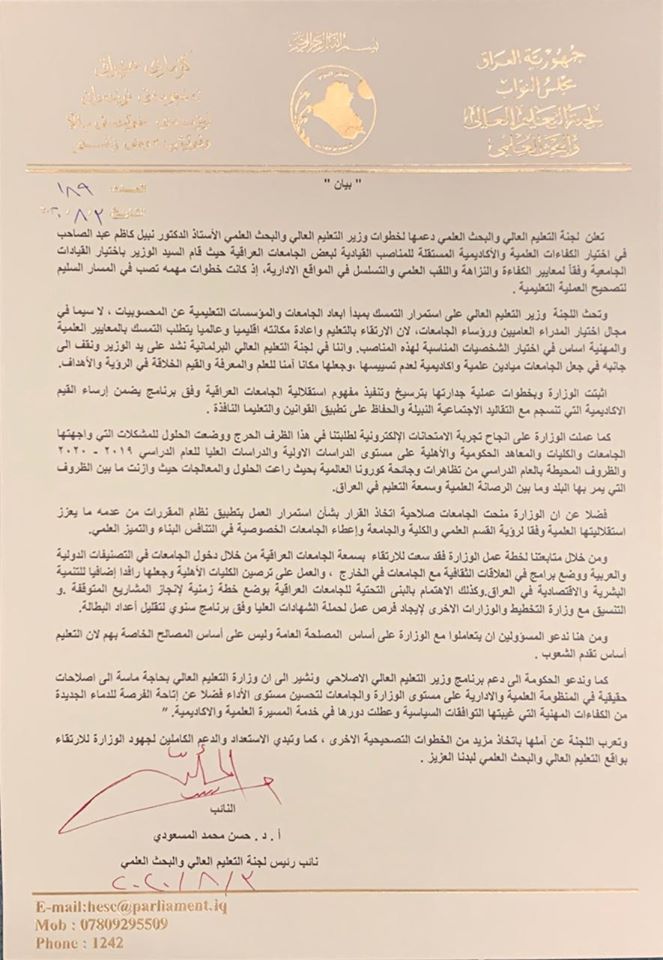 جمهورية العراق
مجلس النواب
لجنة التعليم العالي
والبحث العلمي
العدد: ١٨٩
التاريخ:
" بيان "
تعلن لجنة التعليم العالي والبحث العلمي دعمها لخطوات وزير التعليم العالي والبحث العلمي الأستاذ الدكتور نبيل كاظم عبد الصاحب
في اختيار الكفاءات العلمية والأكاديمية المستقلة للمناصب القيادية لبعض الجامعات العراقية حيث قام السيد الوزير باختيار القيادات
الجامعية وفقاً لمعايير الكفاءة والنزاهة واللقب العلمي والتسلسل في المواقع الادارية، إذ كانت خطوات مهمه تصب في المسار السليم
لتصحيح العملية التعليمية .
وتحث اللجنة وزير التعليم العالي على استمرار التمسك بمبدأ ابعاد الجامعات والمؤسسات التعليمية عن المحسوبيات ، لا سيما في
مجال اختيار المدراء العاميين ورؤساء الجامعات، لان الارتقاء بالتعليم واعادة مكانته اقليميا وعالميا يتطلب التمسك بالمعايير العلمية
والمهنية اساس في اختيار الشخصيات المناسبة لهذه المناصب. واننا في لجنة التعليم العالي البرلمانية نشد على يد الوزير ونقف الى
جانبه في جعل الجامعات ميادين علمية واكاديمية لعدم تسييسها ،وجعلها مكانا آمنا للعلم والمعرفة والقيم الخلاقة في الرؤية والأهداف.
اثبتت الوزارة وبخطوات عملية جدارتها بترسيخ وتنفيذ مفهوم استقلالية الجامعات العراقية وفق برنامج يضمن إرساء القيم
الاكاديمية التي تنسجم مع التقاليد الاجتماعية النبيلة والحفاظ على تطبيق القوانين والتعليما النافذة .
كما عملت الوزارة على انجاح تجربة الامتحانات الإلكترونية لطلبتنا في هذا الظرف الحرج ووضعت الحلول للمشكلات التي واجهتها
الجامعات والكليات والمعاهد الحكومية والأهلية على مستوى الدراسات الاولية والدراسات العليا للعام الدراسي ٢٠١٩ - ٢٠٢٠
والظروف المحيطة بالعام الدراسي من تظاهرات وجائحة كورونا العالمية بحيث راعت الحلول والمعالجات حيث وازنت ما بين الظروف
التي يمر بها البلد وما بين الرصانة العلمية وسمعة التعليم في العراق.
فضلا عن ان الوزارة منحت الجامعات صلاحية اتخاذ القرار بشأن استمرار العمل بتطبيق نظام المقررات من عدمه ما يعزز
استقلاليتها العلمية وفقا لرؤية القسم العلمي والكلية والجامعة وإعطاء الجامعات الخصوصية في التنافس البناء والتميز العلمي.
ومن خلال متابعتنا لخطة عمل الوزارة فقد سعت للارتقاء بسمعة الجامعات العراقية من خلال دخول الجامعات في التصنيفات الدولية
والعربية ووضع برامج في العلاقات الثقافية مع الجامعات في الخارج ، والعمل على ترصين الكليات الأهلية وجعلها رافدا إضافيا للتنمية
البشرية والاقتصادية في العراق.وكذلك الاهتمام بالبنى التحتية للجامعات العراقية بوضع خطة زمنية لإنجاز المشاريع المتوقفة .و
التنسيق مع وزارة التخطيط والوزارات الاخرى لإيجاد فرص عمل لحملة الشهادات العليا وفق برنامج سنوي لتقليل أعداد البطالة.
ومن هنا ندعو المسؤولين ان يتعاملوا مع الوزارة على أساس المصلحة العامة وليس على أساس المصالح الخاصة بهم لان التعليم
أساس تقدم الشعوب .
كما وندعو الحكومة الى دعم برنامج وزير التعليم العالي الاصلاحي ونشير الى ان وزارة التعليم العالي بحاجة ماسة الى اصلاحات
حقيقية في المنظومة العلمية والادارية على مستوى الوزارة والجامعات لتحسين مستوى الأداء فضلا عن إتاحة الفرصة للدماء الجديدة
من الكفاءات المهنية التي غيبتها التوافقات السياسية وعطلت دورها في خدمة المسيرة العلمية والاكاديمية. "
وتعرب اللجنة عن أملها باتخاذ مزيد من الخطوات التصحيحية الاخرى ، كما وتبدي الاستعداد والدعم الكاملين لجهود الوزارة للارتقاء
بواقع التعليم العالي والبحث العلمي لبدنا العزيز .
النائب
أ . د . حسن محمد المسعودي
نائب رئيس لجنة التعليم العالي والبحث العلمي
٢٠٢٠/٨/٢
E-mail:hesc@parliament.iq
Mob : 07809295509
Phone : 1242